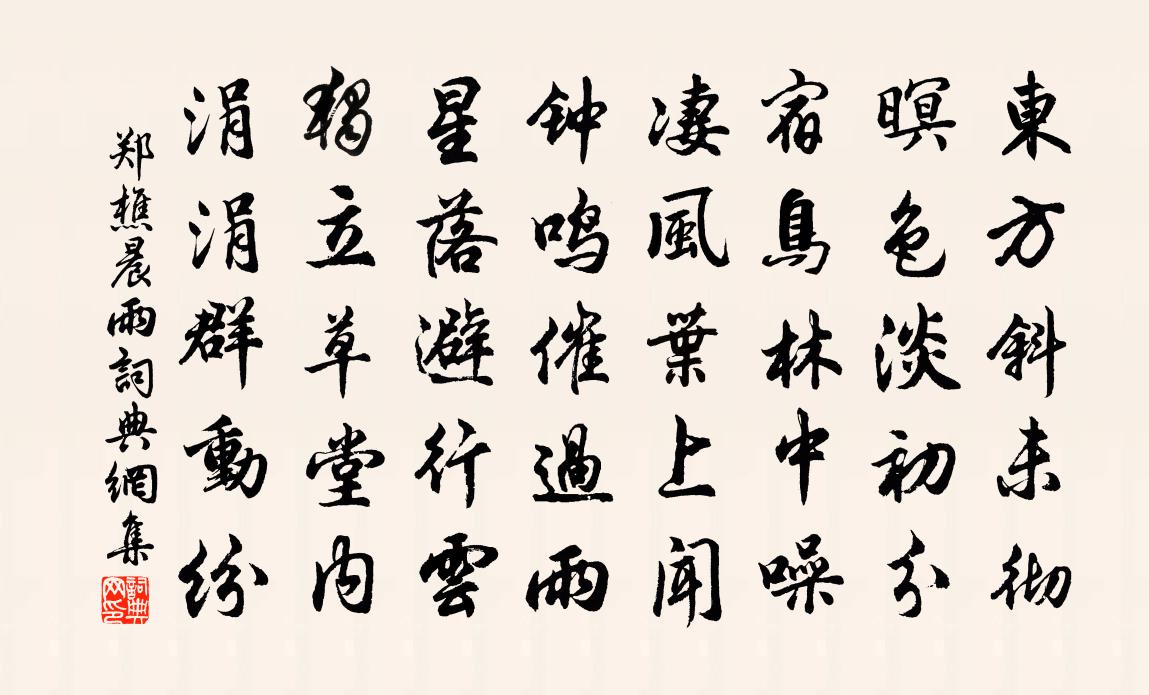 東方斜未彻
暝色淡初分
宿鳥林中噪
凄風葉上聞
钟鸣催過雨
星落避行雲
独立草堂内
涓涓群動纷
郑樵晨雨詞典網集
詞典网印